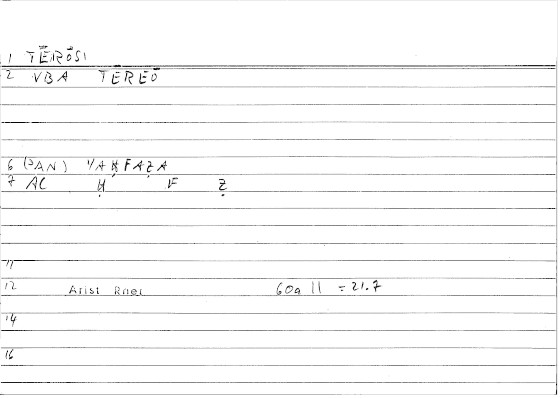 1 TĒRŌSI
2 VBA TEREŌ
6 (JAN) YAḤFAẒA
7 AC Ḥ F Ẓ
11
12 Arist Rhet 60a 11 = 21.7
14
16